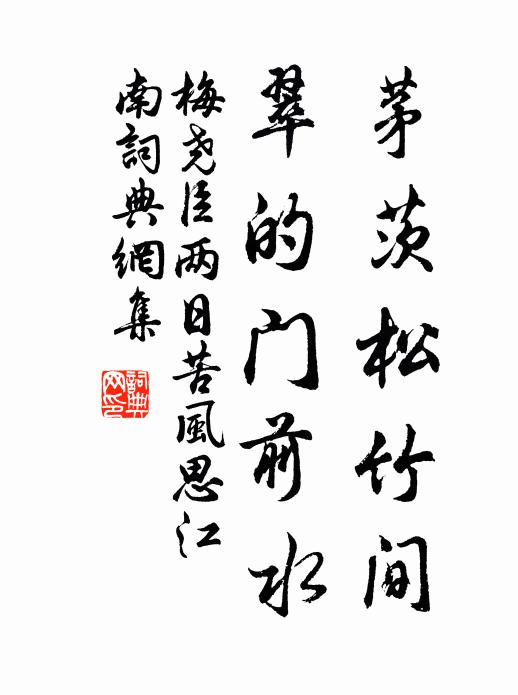 茅茨松竹间
翠的门前水
梅尧臣两日苦風思江
南詞典網集
詞典
网印